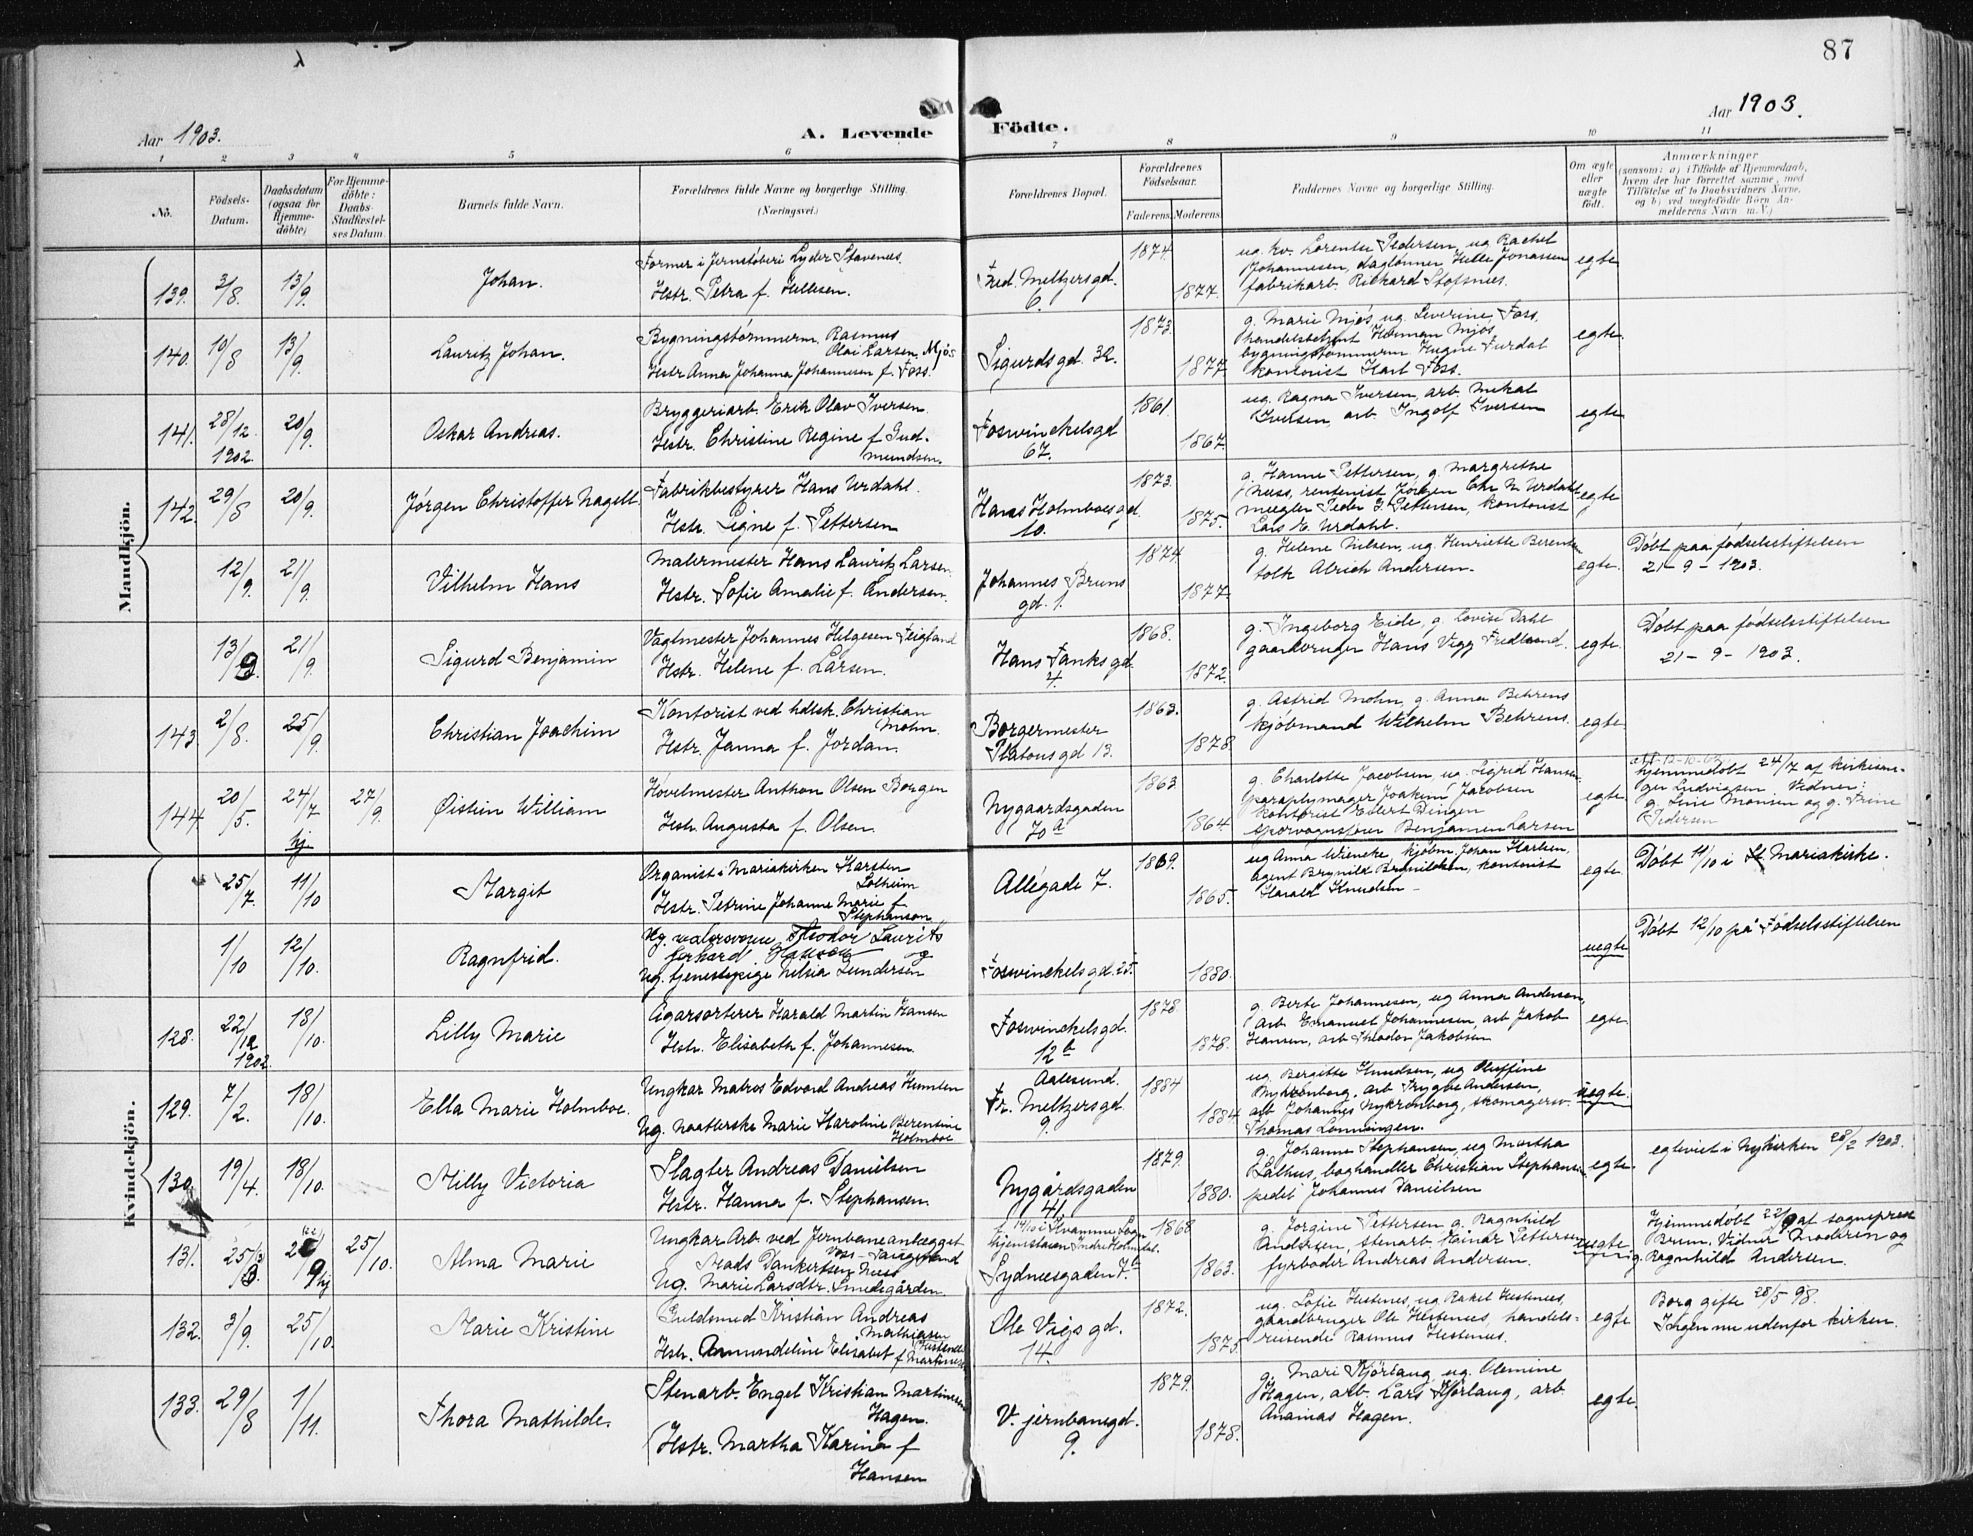 87
Aar 1903.
A. Levende Födte.
Aar 1903.
1 2 3 4 5 6 7 8 9 10 11
No.
Födsels-Datum.
Daabsdatum (ogsaa for Hjemme-döbte)
For Hjemme-döbte: Daabs-Stadfæstel-ses Datum.
Barnets fulde Navn.
Forældrenes fulde Navne og borgerlige Stilling. (Næringsvei.)
Forældrenes Bopæl.
Forældrenes Födselsaar.
Faderens. Moderens.
Faddernes Navne og borgerlige Stilling.
Om ægte eller uægte födt.
Anmærkninger
(saasom: a) i Tilfælde af Hjemmedaab,
hvem der har forrettet samme, med
Tilføielse af to Daabsvidners Navne,
og b) ved uægtefödte Börn An-
melderens Navn m. V.)
Mandkjön.
139. 3/8. 13/9. Johan.
Former i Jernstøberi Lyder Stavenes.
Hstr. Petra f. Hellesen.
Fred. Meltzersgd. 6.
1874. 1877.
ug. kv. Lorentse Pedersen, ug. Rachel
Johannesen, daglønner Helle Jonassen
fabrikarb. Rickard Stofsnes.
egte
140. 19/8 13/9. Lauritz Johan.
Bygningstømmerm. Rasmus
Olai Larsen Mjøs
Hstr Anna Johanna Johannesen f. Foss.
Sigurdsgd. 32.
1873. 1877
g. Marie Mjøs, ug. Severine Foss,
handelsbetjent Herman Mjøs
bygningstømmerm Hagne Furdal
kontorist Karl Foss.
egte
141. 28/12. 1902. 20/9. Oskar Andreas.
Bryggeriarb. Erik Olav Iversen.
Hstr. Christine Regine f. Gud-
mundsen.
Foswinckelsgd 67.
1861. 1867.
ug. Ragna Iversen, arb. Mikal
Iversen, arb Ingolf Iversen
egte
142. 29/8 20/9. Jørgen Christoffer Nagell.
Fabrikbestyrer Hans Urdahl.
Hstr. Signe f. Pettersen
Hans Holmboesgd. 10.
1873. 1875.
g. Hanne Pettersen, g. Margrethe
Ness, rentenist Jørgen Chr. N. Urdahl
megler Peder J. Pettersen, kontorist
Lars E. Urdahl.
egte
12/9. 21/9. Vilhelm Hans
Malermester Hans Lauritz Larsen.
Hstr. Sofie Amalie f. Andersen.
Johannes Bruns gd. 1.
1874 1877
g. Helene Nilsen, ug. Henriette Berentsen
tolk Alrich Andersen.
egte.
Døbt paa fødselsstiftelsen
21-9-1903.
13/9. 21/9. Sigurd Benjamin
Vagtmester Johannes Helgesen Feigland
Hstr. Helene f. Larsen.
Hans Tanksgd 4.
1868. 1872.
g. Ingeborg Eide, g. Lovise Dahl
gaardbruger Hans Vigg Fredlund.
egte.
Døbt paa fødselsstiftelsen
21-9-1903.
143. 2/8. 25/9. Christian Joachim
Kontorist ved hdlsk. Christian
Mohn.
Hstr. Janna f. Jordan.
Borgermester Platousgd 13.
1863. 1878.
g. Astrid Mohn, g. Anna Behrens
kjøbmand Wilhelm Behrens.
egte.
144 20/5. 24/7 hj. 27/9. Øistein William
Høvelmester Anthon Olsen Borgen
Hstr. Augusta f. Olsen.
Nygaardsgaden 70a
1863 1864.
g. Charlotte Jacobsen, ug. Sigrid Hansen
paraplymager Joakim Jacobsen
kontorist Edert Dingen
sporvognsfører Benjamin Larsen
egte.
hjemmedøbt 24/7 af kirkesan-
ger Ludvigsen. Vidner:
g. Line Monsen og g. Trine
Pedersen
Kvindekjön.
25/7. 11/10 Margit
Organist i Mariakirken Karsten
Solheim
Hstr. Petrine Johanne Marie f.
Stephanson
Allégade 7.
1869. 1865.
ug Anna Wieneke kjøbm. Johan Karlsen,
agent Brynild Brynildsen, kontorist
Harald Knudsen -
egte.
Døbt 11/10 i St Mariakirke.
1/10 12/10. Ragnfrid.
Ug. malersvenn Theodor Laurits
Gerhard Hansen og
Ug. tjenestepige Nelsia Gundersen
Foswinckelsgd. 25.
1880.
uegte
Døbt 12/10 på Fødselsstiftelsen
128. 22/12 1902. 18/10. Lilly Marie
Cigarsorterer Harald Martin Hansen
Hstr. Elisabeth f. Johannesen.
Foswinckelsgd. 12b
1878. 1878.
g. Berte Johannesen, ug Anna Andersen,
arb. Emanuel Johannesen, arb Jakob
Hansen, arb Theodor Jakobsen
egte.
129. 7/2. 18/10. Ella Marie Holmboe.
Ungkar Matros Edvard Andreas Humlen
Ug. Maatlerske Marie Karoline Berentine
Holmboe
Aalesund.
Fr. Meltzersgd 9.
1884 1884.
ug. Bergitte Knudsen, ug Oluffine
Nykrønborg, arb Trygve Andersen,
arb Johannes Nykrønborg, skomagersv.
Thomas Lonningen.
uegte.
130. 19/4. 18/10. Milly Victoria
Slagter Andreas Danielsen
Hstr. Hanna f. Stephansen.
Nygårdsgaden 41.
1879. 1880.
g. Johanne Stephansen, ug Martha
Dalhus, boghandler Christian Stephansen
pedel Johannes Danielsen
egte.
egteviet i Nykirken 28/2 1903.
131. 25/3 25/9 hj 25/10. Alma Marie
Ungkar Arb ved Jernbaneanlægget
Voss-Taugevand
Mads Dankertsen Ness
Ug. Marie Larsdtr. Smedegården
f. 14/10 i Kvamme Sogn
hjemstavn Indre Holmedal.
Sydnesgaden 7b
1868 1863.
g. Jorgine Pettersen g. Ragnhild
Andersen, stenarb Einar Pettersen
fyrbøder Andreas Andersen.
uegte
Hjemmedøbt 22/9 af sognepræst
Brun. Vidner Moderen og
g. Ragnhild Andersen.
132. 3/9. 25/10. Marie Kristine
Guldsmed Kristian Andreas
Mathiesen Hestenes
Hstr. Amundeline Elisabet f Martinesen
Ole Vigsgd. 14.
1872. 1875.
ug. Sofie Hestenes, ug Rakel Hestenes,
gaardbruger Ole Hestenes, handels-
reisende Rasmus Hestenes.
egte
Borg. gifte 28/5 98.
Ingen nu udenfor kirken.
133. 29/8 1/11. Thora Mathilde.
Stenarb. Engel Kristian Martinesen
Hagen.
Hstr. Martha Karina f
Hansen
V. jernbanegd. 9.
1879. 1878.
g. Mari Kjørlaug, ug. Olemine
Hagen, arb. Lars Kjørlaug, arb.
Ananias Hagen.
egte.